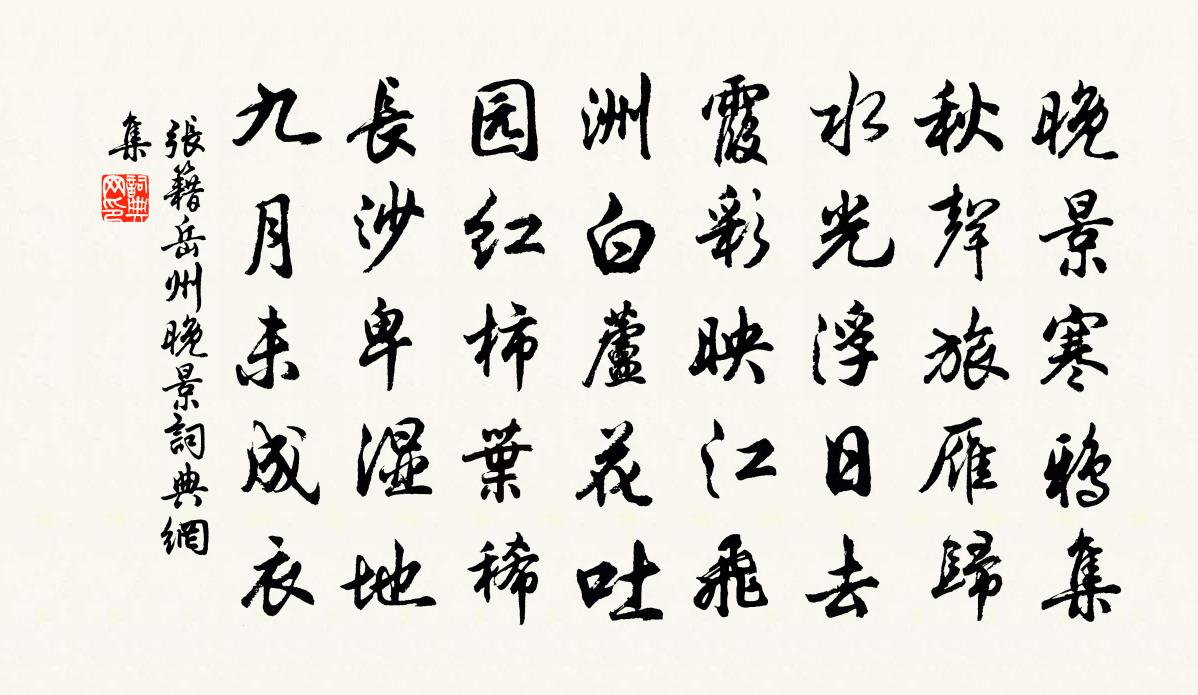 晚景寒鸦集
秋聲旅雁歸
水光浮日去
霞彩映江飛
洲白蘆花吐
园红柿葉稀
長沙卑湿地
九月未成衣
張籍岳州晚景詞典網
集
詞典
网印